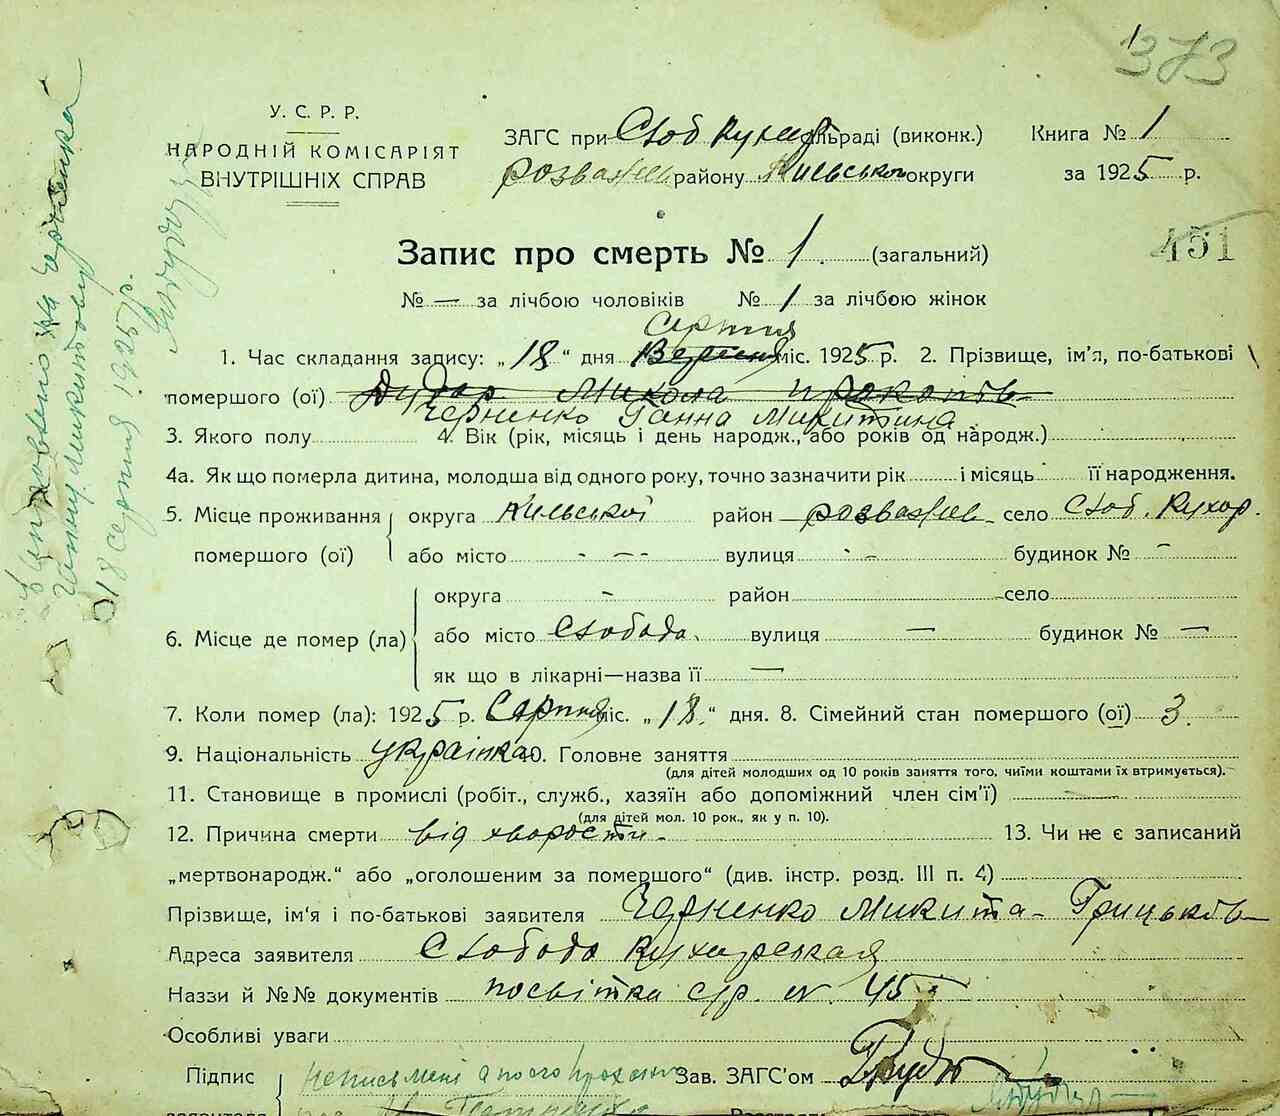 373
У. С. Р. Р.
НАРОДНІЙ КОМІСАРІЯТ
ВНУТРІШНІХ СПРАВ
ЗАГС при Слоб Кухар сільраді (виконк.) Книга № 1
розважів району Київської округи за 1925 р.
451
Запис про смерть № 1. (загальний)
№ — за лічбою чоловіків № 1 за лічбою жінок
серпня
1. Час складання запису: „18“ дня Вересня міс. 1925 р. 2. Прізвище, ім’я, по-батькові
помершого (ої) Дудар Микола Прокопів
Черненко Ганна Микитина
3. Якого полу 4. Вік (рік, місяць і день народж., або років од народж.)
4а. Як що померла дитина, молодша від одного року, точно зазначити рік і місяць її народження.
5. Місце проживання помершого (ої) округа Київської район розважів село Слоб. Кухар.
або місто - - - - вулиця - – будинок № –
6. Місце де помер (ла) округа – район село
або місто Слобода вулиця — будинок № —
як що в лікарні—назва її —
7. Коли помер (ла): 1925 р. Серпня міс. „18.“ дня. 8. Сімейний стан помершого (ої) 3.
9. Національність українка 10. Головне заняття
(для дітей молодших од 10 років заняття того, чиїми коштами їх втримується).
11. Становище в промислі (робіт., служб., хазяїн або допоміжний член сім’ї) —
(для дітей мол. 10 рок., як у п. 10).
12. Причина смерти від хворости 13. Чи не є записаний
„мертвонародж.“ або „оголошеним за помершого“ (див. інстр. розд. III п. 4)
Прізвище, ім’я і по-батькові заявителя Черненко Микита Грицьків
Адреса заявителя Слобода Кухарская
Наззи й №№ документів посвітка с/р. N. 45
Особливі уваги
Підпис неписьмені а по его прозьби Зав. ЗАГС’ом
заявителя
Виправлено на Черненко
Ганну Микитовну
18 серпня 1925 р.